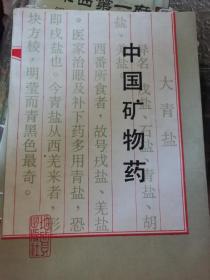 中国矿物药
大青盐
异名 戎盐、石盐、青盐、胡
盐、羌盐
西番所食者，故号戎盐、羌盐
。医家治眼及补下药多用青盐，恐
即戎盐也。今青盐从西羌来者，形
块方棱，明莹而青黑色最奇。
地质出版社